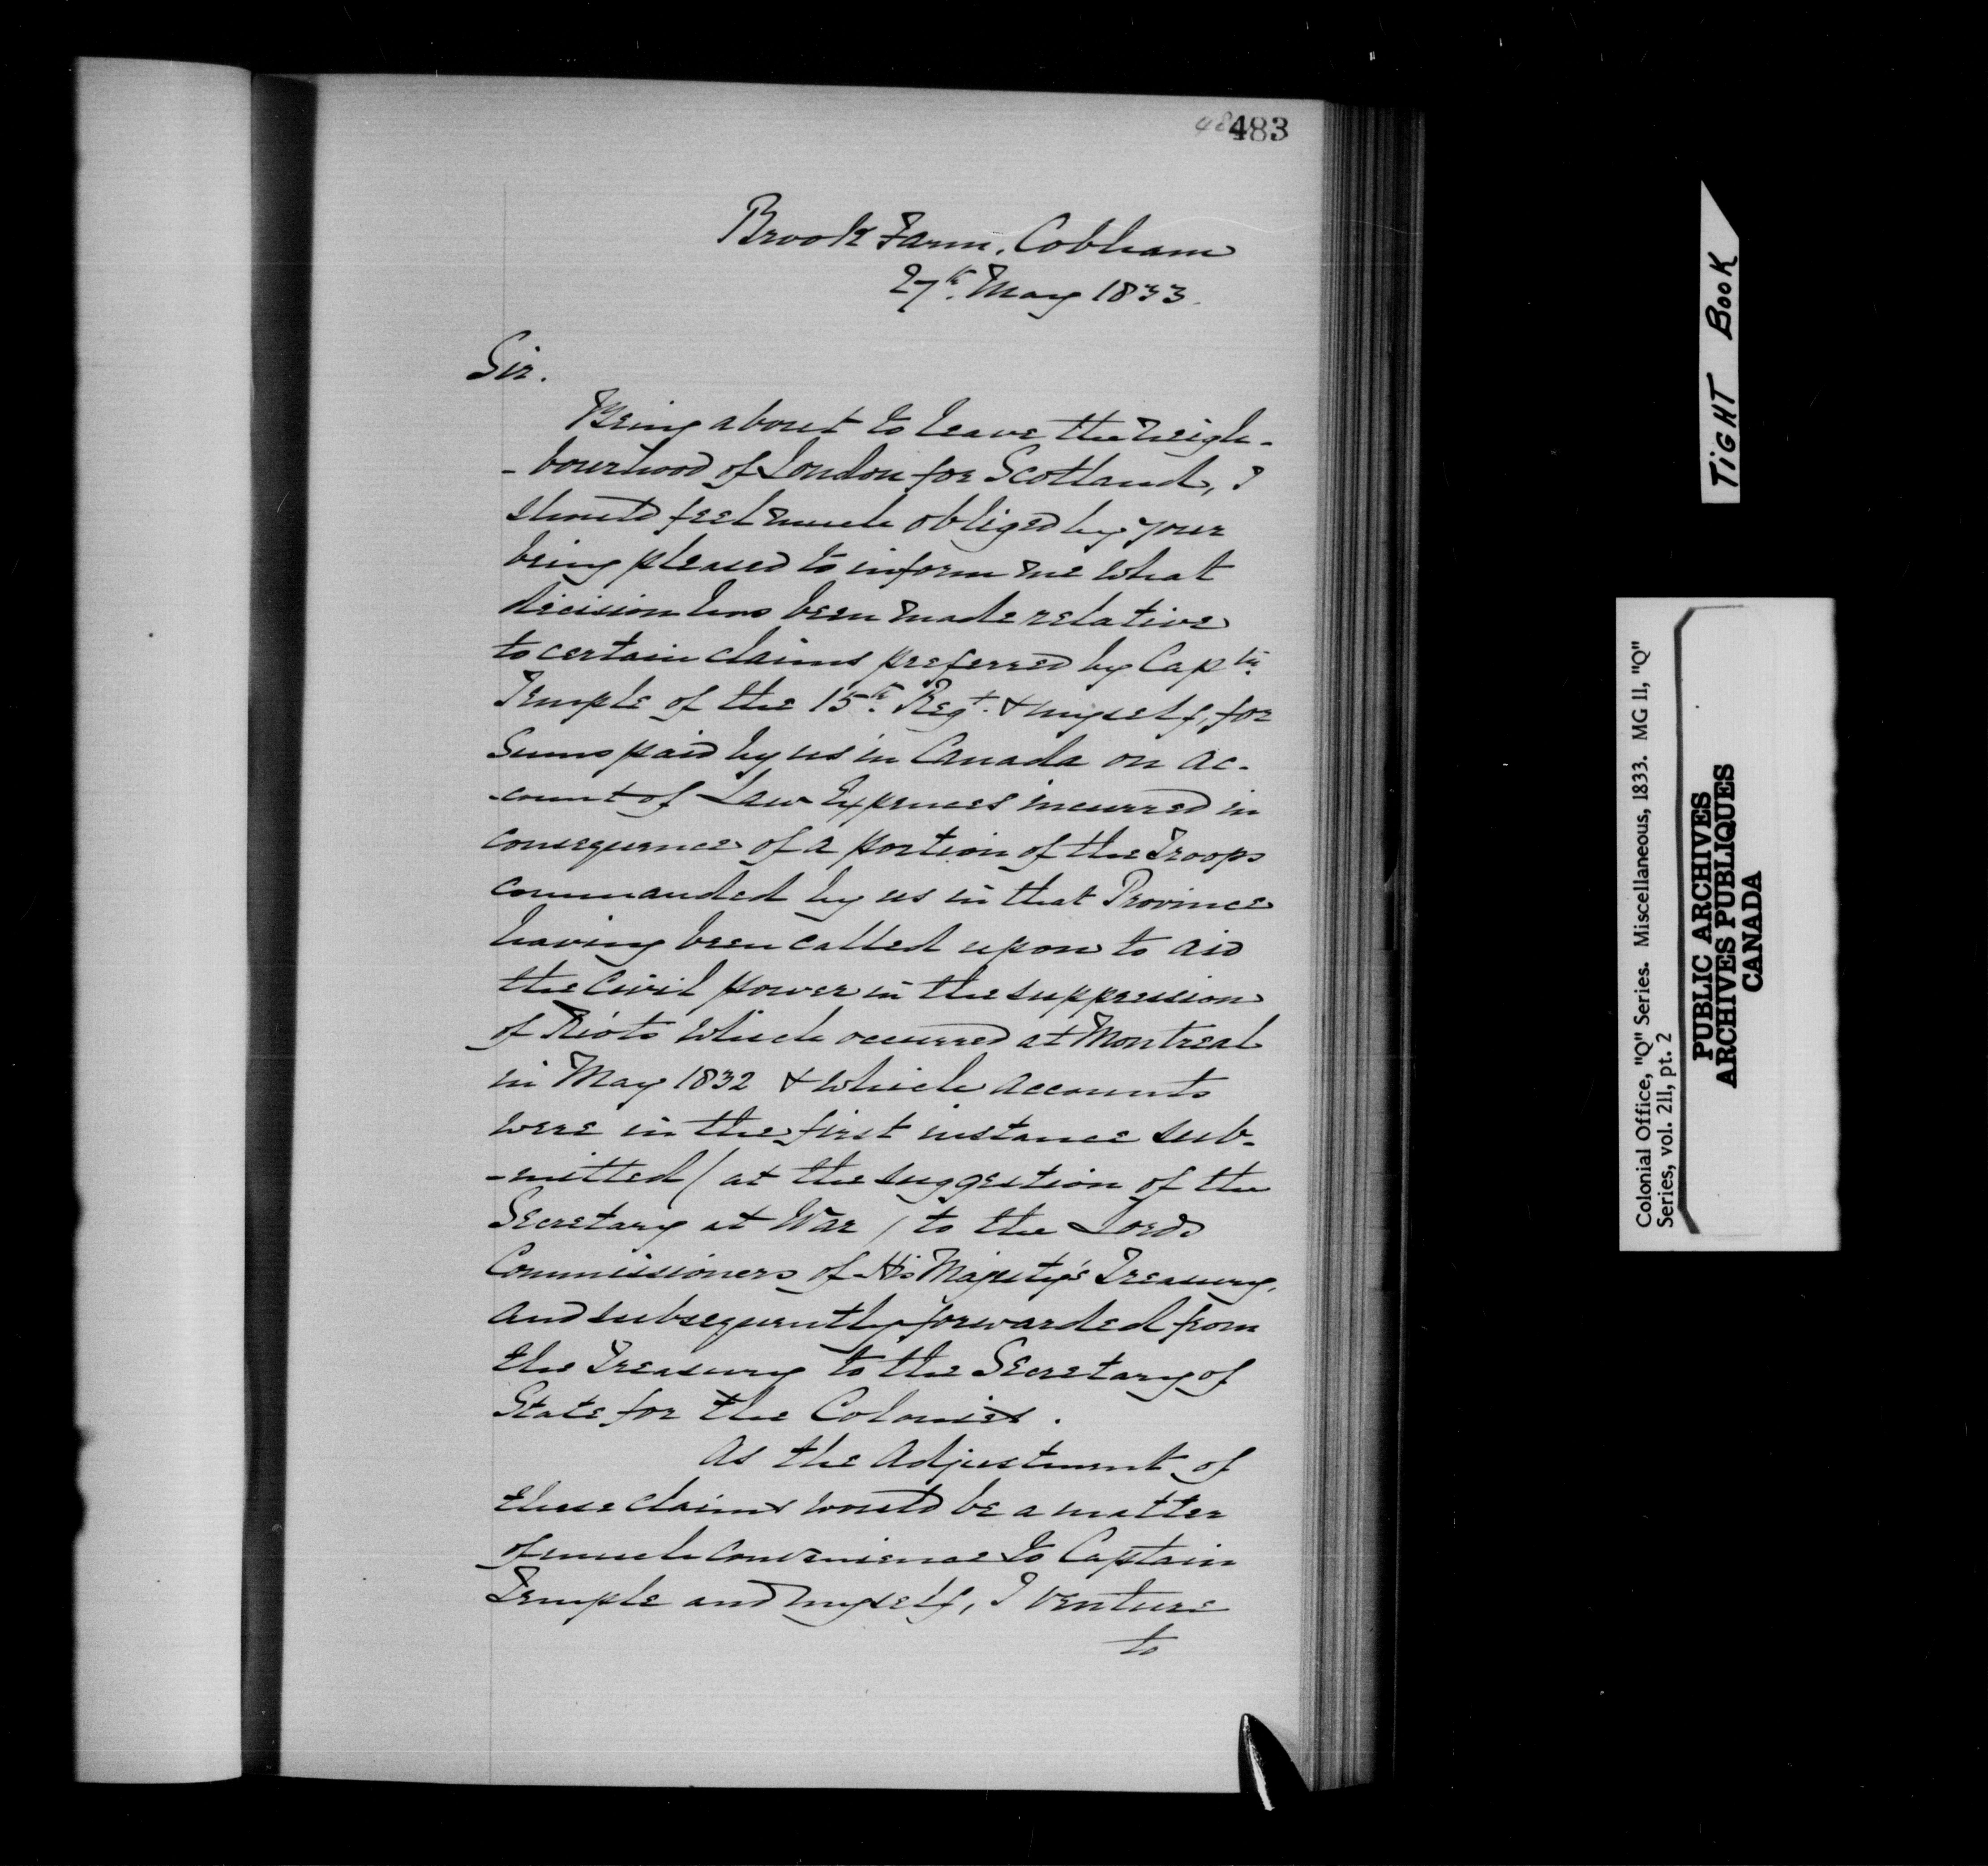 48483
Brook Farm, Cobham
27th. May 1833.
Sir.
Being about to leave the neigh-
-bourhood of London for Scotland, I
should feel much obliged by your
being pleased to inform me what
decision has been made relative
to certain claims preferred by Captn.
Temple of the 15th. Regt. & myself, for
Sums paid by us in Canada on ac-
-count of Law Expences incurred in
consequence of a portion of the Troops
commanded by us in that Province
having been called upon to aid
the Civil power in the suppression
of Riots which occurred at Montreal
in May 1832 & which accounts
were in the first instance sub-
-mitted / at the suggestion of the
Secretary at War / to the Lords
Commissioners of His Majesty's Treasury,
and subsequently forwarded from
the Treasury to the Secretary of
State for the Colonies.
As the adjustment of
these claims would be a matter
of much convenience to Captain
Temple and myself, I venture
to
TIGHT BOOK
Colonial Office, "Q" Series. Miscellaneous, 1833. MG 11, "Q"
Series, vol. 211, pt. 2
PUBLIC ARCHIVES
ARCHIVES PUBLIQUES
CANADA